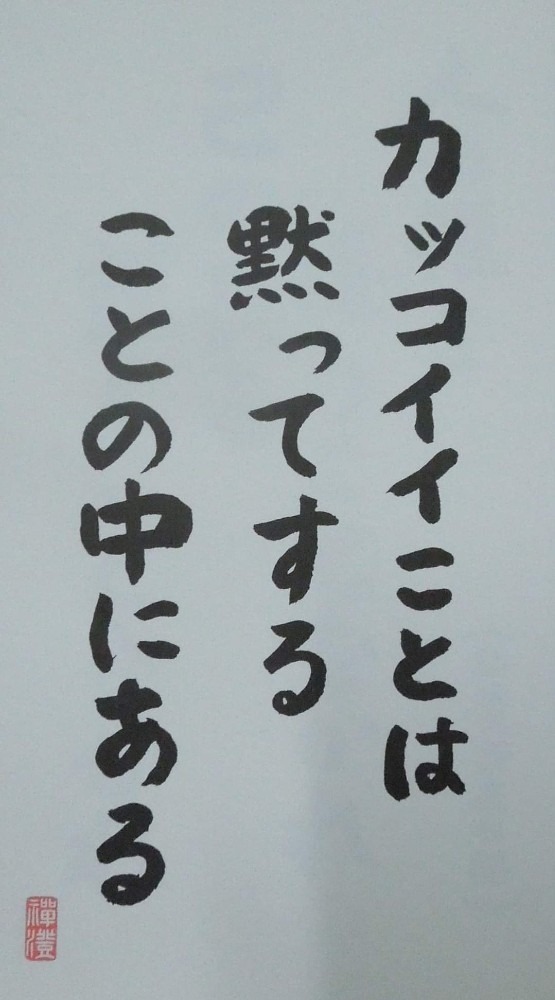 カッコイイことは
黙ってする
ことの中にある
禅澄